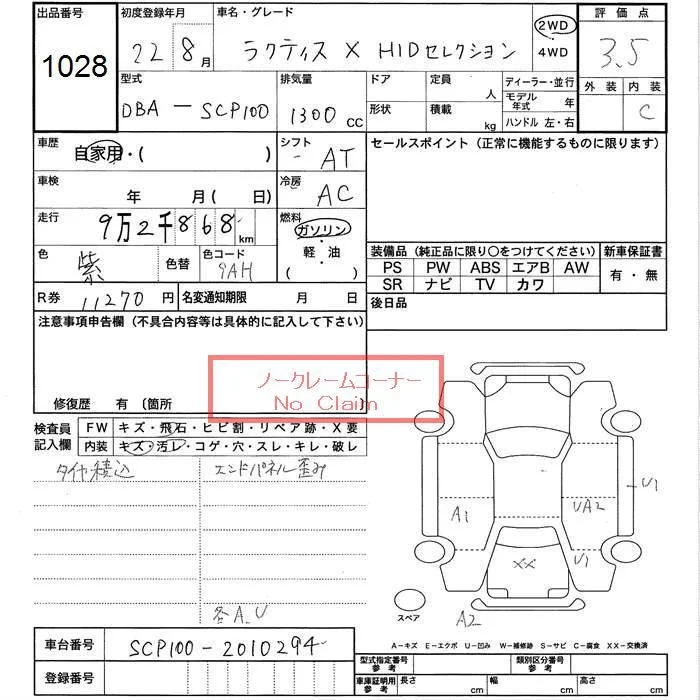 出品番号 初度登録年月 車名・グレード 評価点
1028 22 8月 ラクティス X HIDセレクション 2WD 4WD 3.5
外装 内装
C
型式 排気量 ドア 定員 ディーラー・並行
DBA-SCP100 1300 CC 形状 人 モデル年式 年
積載 kg ハンドル 左・右
車歴 シフト セールスポイント(正常に機能するものに限ります)
自家用・( ) - AT
車検 冷房
年 月(日) AC
走行 燃料
9万2千868km ガソリン・軽油( )
色 色替 色コード 装備品(純正品に限り○をつけてください) 新車保証書
紫 9AH PS PW ABS エアB AW 有・無
SR ナビ TV カワ
R券 11270円 名変通知期限 月 日 後日品
注意事項申告欄(不具合内容等は具体的に記入して下さい)
ノークレームコーナー
No Claim
修復歴 有(箇所 )
検査員記入欄 FW キズ・飛石・ヒビ割・リペア跡・X要
内装 キズ・汚レ・コゲ・穴・スレ・キレ・破レ
タイヤ積込 エンドパネル歪み
U1
A1 UA2
XX U1
各A.U スペア A2
A-キズ E-エクボ U-凹み W-補修跡 S-サビ C-腐食 XX-交換済
車台番号 SCP100-2010294
型式指定番号参考 類別区分番号参考
登録番号 車庫証明用参考 長さ cm 幅 cm 高さ cm